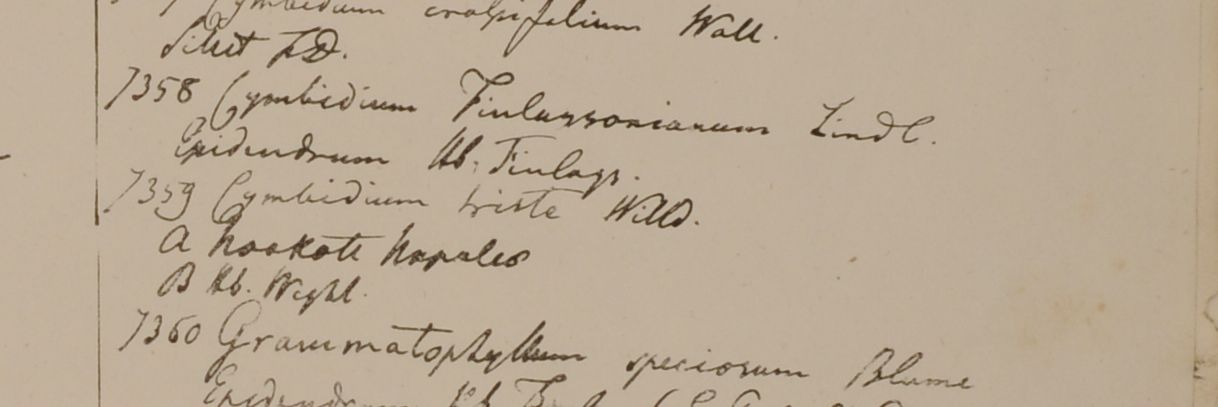 Cymbidium crassifolium Wall.
Silhet FD.
7358 Cymbidium Finlaysonianum Lindl.
Epidendrum Hb. Finlays.
7359 Cymbidium triste Willd.
A Nookote Napalea
B Hb. Wight.
7360 Grammatophyllum speciosum Blume
Epidendrum Hb. F